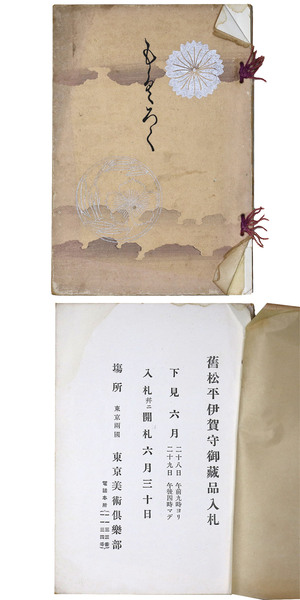 もくろく
舊松平伊賀守御藏品入札
下見 六月 二十八日 午前九時ヨリ
二十九日 午後四時マデ
入札并ニ開札六月三十日
塲所 東京両國 東京美術俱樂部
電話本所